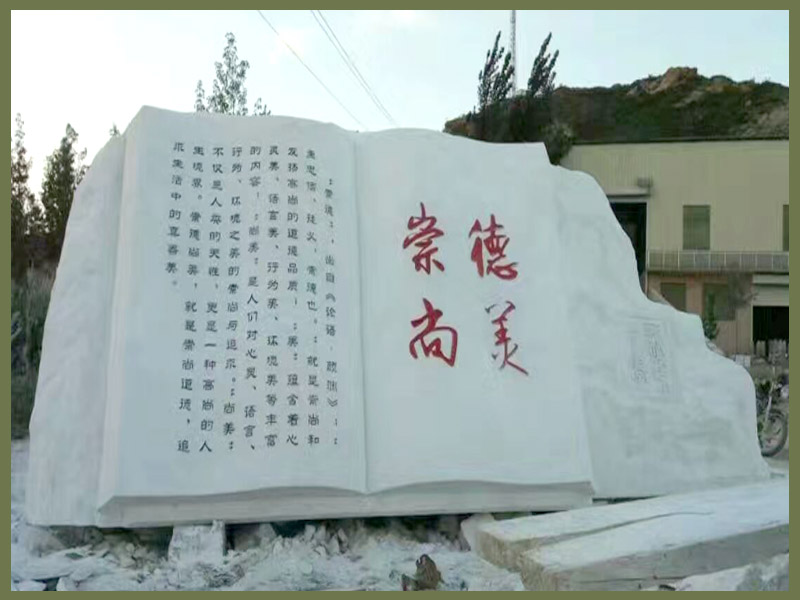 崇德
尚美
：崇德：，出自《论语，颜渊》：：
主忠信，徙义，崇德也。：就是崇尚和
发扬高尚的道德品质；：美：蕴含着心
灵美、语言美、行为美、环境美等丰富
的内容。：尚美：是人们对心灵、语言、
行为、环境之美的崇尚与追求。：尚美：
不仅是人类的天性，更是一种高尚的人
生境界。崇德尚美，就是崇尚道德，追
求生活中的真善美。